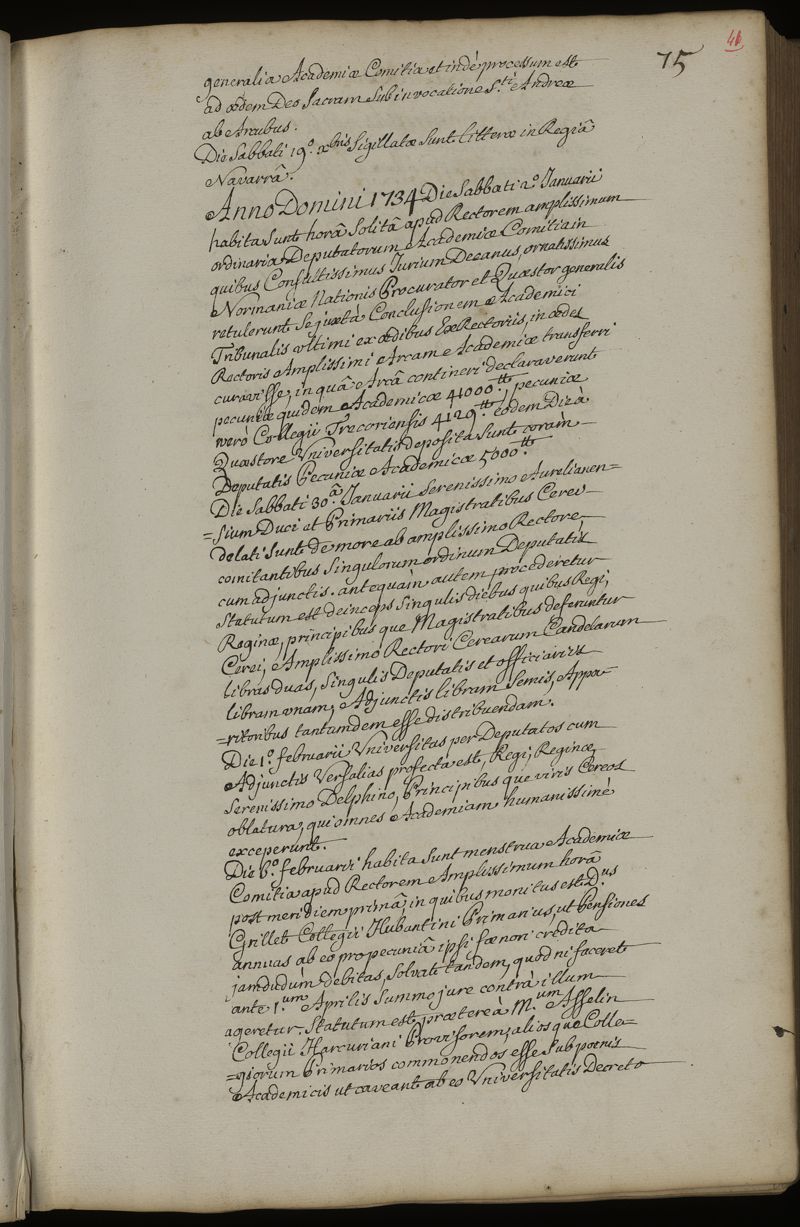 46
75
generalia Academiæ Comitia et indè processum est
ad ædem Deo Sacram Sub invocatione S.ti Andreæ
ab Arcubus.
Die Sabbati 19.o xbris Sigillatæ Sunt litteræ in Regiâ
Navarrâ.
Anno Domini 1734 Die Sabbati 2.o Januarii
habita Sunt horâ Solitâ apud Rectorem amplissimum
ordinaria Deputatorum Academiæ Comitia in
quibus Consultissimus Jurium Decanus, ornatissimus
Normaniæ Nationis Procurator et Quæstor generalis
retulerunt Se juxtà Conclusionem Academici
Tribunalis ultimi ex ædibus ExRectoriis, in ædes
Rectoris Amplissimi Arcam Academiæ transferri
curavisse; in quâ Arcâ contineri declaraverunt
pecuniæ quidem Academicæ 41000.tt, pecuniæ
verò Collegii Trecoriensis 4129.tt eodem Die à
Quæstore Universitatis deposita Sunt coràm
Deputatis Pecuniæ Academicæ 5000.tt
Die Sabbati 30.a Januarii Serenissimo Aurelianen=
=sium Duci et Primariis Magistratibus Cerei
delati Sunt de more ab amplissimo Rectore,
comitantibus Singulorum ordinum Deputatis
cum adjunctis. antequàm autem procederetur
Statutum est deinceps Singulis diebus quibus Regi,
Reginæ, principibusque Magistratibus deferuntur
Cerei, Amplissimo Rectori Cerearum Candelarum
libras duas, Singulis Deputatis et officiariis
libram unam, Adjunctis libram Semis, Appa=
=ritoribus tantumdem esse distribuendam.
Die 1.o februarii Universitas per Deputatos cum
Adjunctis Versalias profecta est, Regi, Reginæ,
Serenissimo Delphino, Principibusque viris Cereos
oblatura, qui omnes Academiam humanissimè
exceperunt.
Die 6.o februarii habita Sunt menstrua Academiæ
Comitia apud Rectorem Amplissimum horâ
post meridiem primâ, in quibus monitus est D.us
Grillet Collegii Hubantini Primarius, ut pensiones
annuas ab eo pro pecuniâ ipsi fænori credita
jamdudùm debitas, Solvat tandem, quod ni faceret
ante 1.um Aprilis Summo jure contrà illum
ageretur. Statutum est prætereà M.um Asselin
Collegii Harcuriani Provisorem, aliosque Colle=
=giorum Primarios commonendos esse Sub pœnis
Academicis ut caveant ab eo Universitatis Decreto